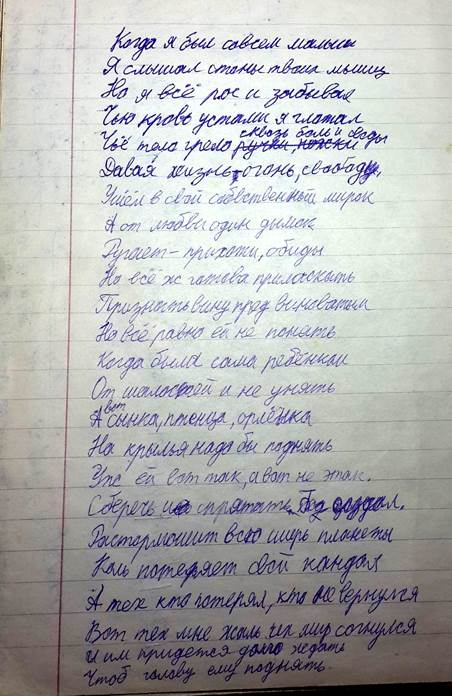 Когда я был совсем малыш
Я слышал стоны твоих мышц
Но я всё рос и забывал
Чью кровь устами я глотал
Чьё тело грело ручки ножки сквозь боли и воды
Давая жизнь-огонь, свободу.
Ушёл в свой собственный мирок
А от любви один дымок
Ругает - прихоти, обиды
Но всё ж готова приласкать
Признать вину пред виноватым
Но всё равно ей не понять
Когда была сама ребёнком
От шалостей и не унять
А вот сынка, птенца, орлёнка
На крылья надо бы поднять
Уж ей вот так, а вот не этак.
Сберечь и спрятать
Растормошит всю ширь планеты
Коль потеряет свой кандал
А тех кто потерял, кто не вернулся
Вот тех мне жаль их мир согнулся
И им придется долго ждать
Чтоб голову ему поднять.